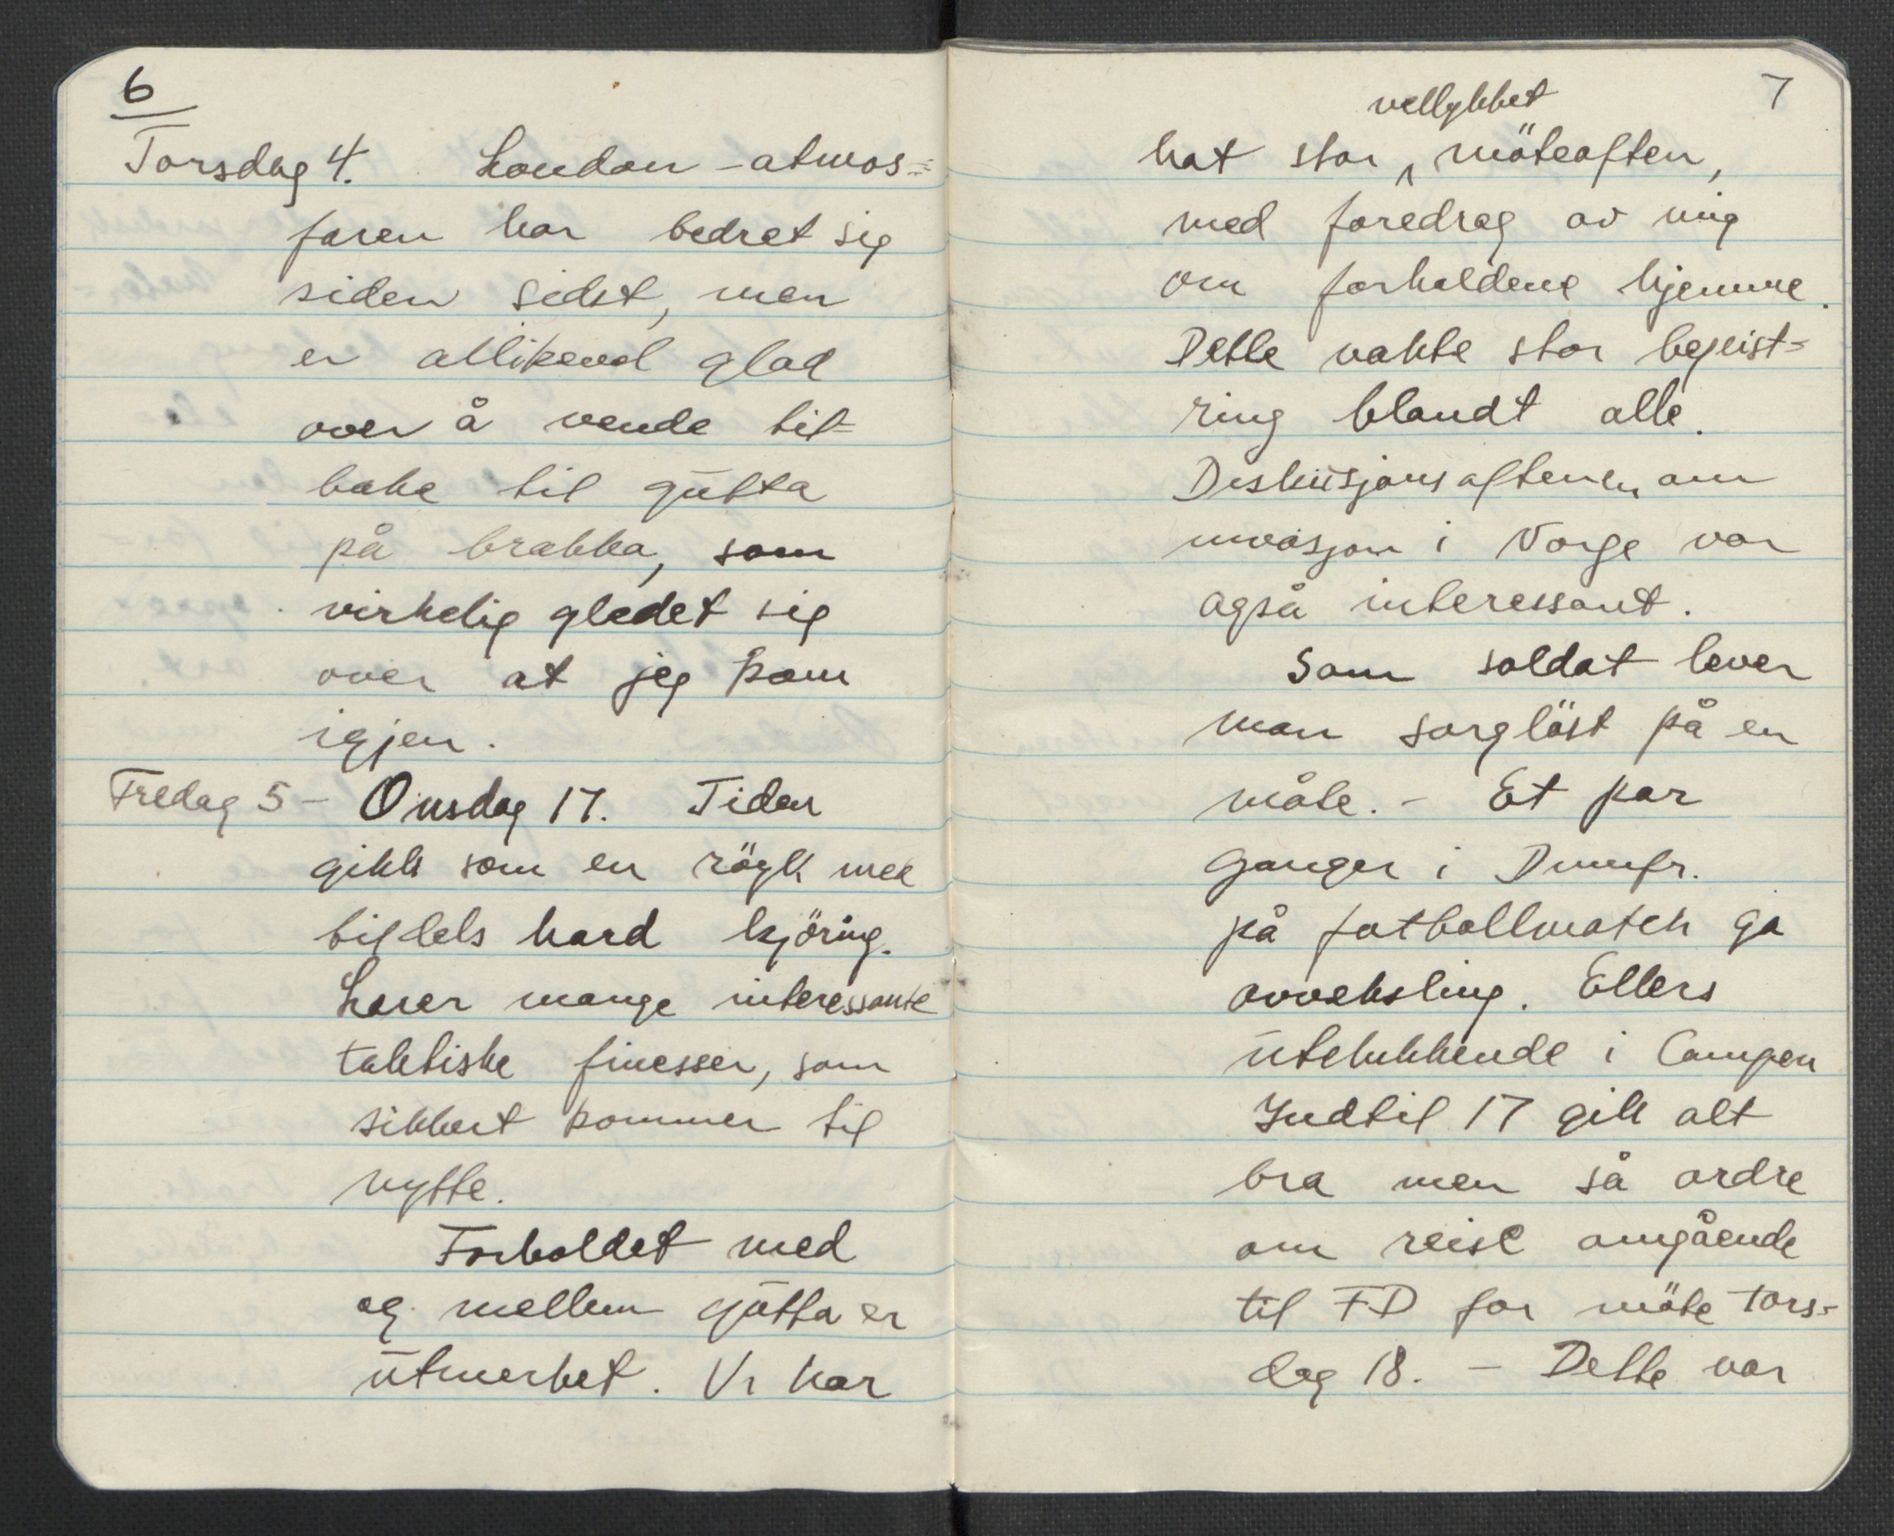 6
Torsdag 4. London-atmos=
færen har bedret sig
siden sidst, men
er allikevel glad
over å vende til=
bake til gutta
på brakka, som
virkelig gledet sig
over at jeg kom
igjen.
Fredag 5 - Onsdag 17. Tiden
gikk som en röyk med
tildels hard kjöring.
Lærer mange interessante
taktiske finesser, som
sikkert kommer til
nytte.
Forholdet med
og mellem gutta er
utmerket. Vi har
7
vellykket
hat stor möteaften,
med foredrag av mig
om forholdene hjemme.
Dette vakte stor begeist=
ring blandt alle.
Diskusjonsaftenen om
invasjon i Norge var
også interessant.
Som soldat lever
man sorglöst på en
måte. - Et par
ganger i Dumfr.
på fotballmatch ga
avveksling. Ellers
utelukkende i Campen
Indtil 17 gikk alt
bra men så ordre
om reise omgående
til FD for möte tors=
dag 18. - Dette var